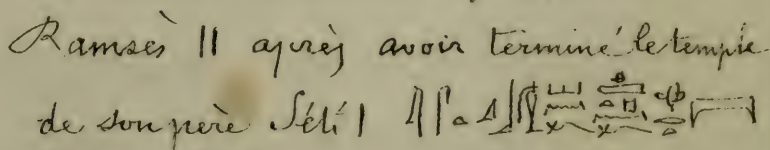 Ramsès II après avoir terminé le temple
de son père Séti I